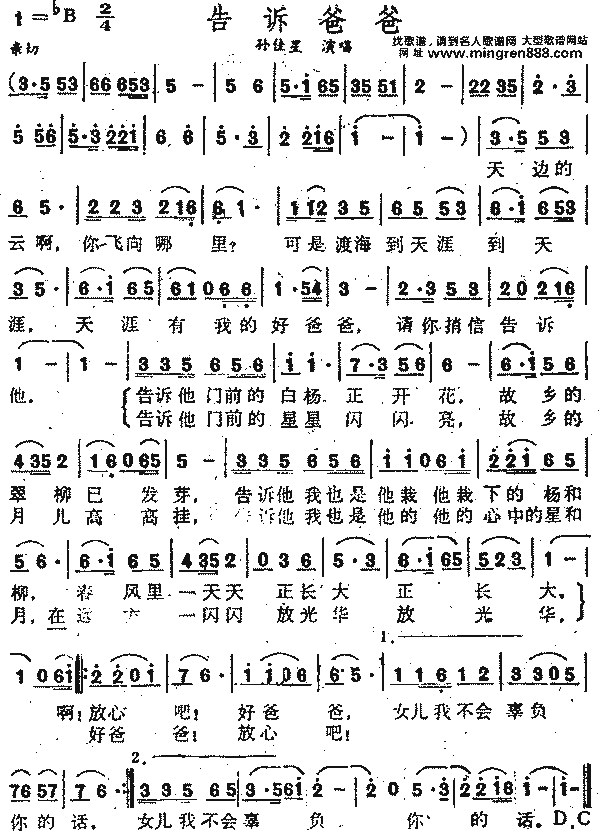 1=♭B 2/4
告诉爸爸
亲切
孙佳星 演唱
找歌谱，请到名人歌谱网 大型歌谱网站
网址 www.mingren888.com
(3·5 53 | 66 653 | 5 - | 5 6 | 5·1 65 | 35 51 | 2 - | 22 35 | 2·3 |
5 56 | 5·3 221 | 6 6 | 5·3 | 2 216 | 1 - | 1 -) | 3·5 5 3 |
天 边的
6 5· | 2 2 3 2 16 | 6 1· | 1 12 3 5 | 6 5 5 3 | 6 10 6 53 |
云啊，你飞向哪 里？ 可是渡海到天涯 到 天
3 5· | 6·1 65 | 61 06 6 | 1·54 | 3 - | 2·3 5 3 | 2 0 2 16 |
涯， 天涯有 我的好爸爸， 请你捎信告诉
1 - | 1 - | 3 3 5 6 5 6 | 1 1 | 7·3 56 | 6 - | 6·1 56 |
他。 告诉他门前的白杨正开花，故乡的
告诉他门前的星星闪闪亮，故乡的
4 35 2 | 16 0 65 | 5 - | 3 3 5 6 5 6 | 1 10 6 1 | 2 21 6 5 |
翠柳已发芽，告诉他我也是他栽他栽下的杨和
月儿高高挂，告诉他我也是他的他的心中的星和
5 6· | 6·1 6 5 | 4 35 2 | 0 3 6 | 5·3 | 6·1 65 | 5 2 3 | 1 - |
柳，春风里一天天正长大正长大。
月，在 一闪闪放光华放光华，
1 0 61 | 2 2 0 1 | 7 6· | 1 10 6 | 2·3 | 1 1 6 1 2 | 3 30 5 |
1.
啊！放心吧！好爸爸，女儿我不会辜负
好爸爸！放心吧！
76 57 | 7 6· | 3 3 5 6 5 | 3·5 61 | 2 - | 2 0 | 5·3 | 2 2 16 | 1 - | 1 - |
2.
你的话，女儿我不会辜负你的话。D.C